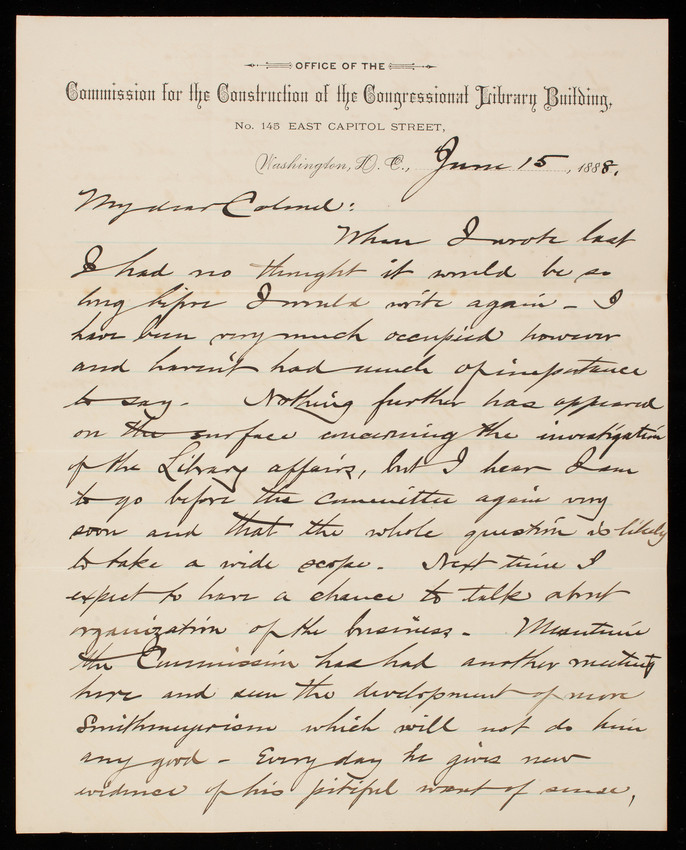 OFFICE OF THE
Commission for the Construction of the Congressional Library Building,
No. 145 EAST CAPITOL STREET,
Washington, D. C., June 15, 1888.
My dear Colonel:
When I wrote last
I had no thought it would be so
long before I would write again – I
have been very much occupied however
and haven't had much of importance
to say. Nothing further has appeared
on the surface concerning the investigation
of the Library affairs, but I hear I am
to go before the committee again very
soon and that the whole question is likely
to take a wide scope. Next time I
expect to have a chance to talk about
organization of the business. Meantime
the Commission has had another meeting
here and seen the development of more
Smithmeyerism which will not do him
any good – Every day he gives new
evidence of his pitiful want of sense,